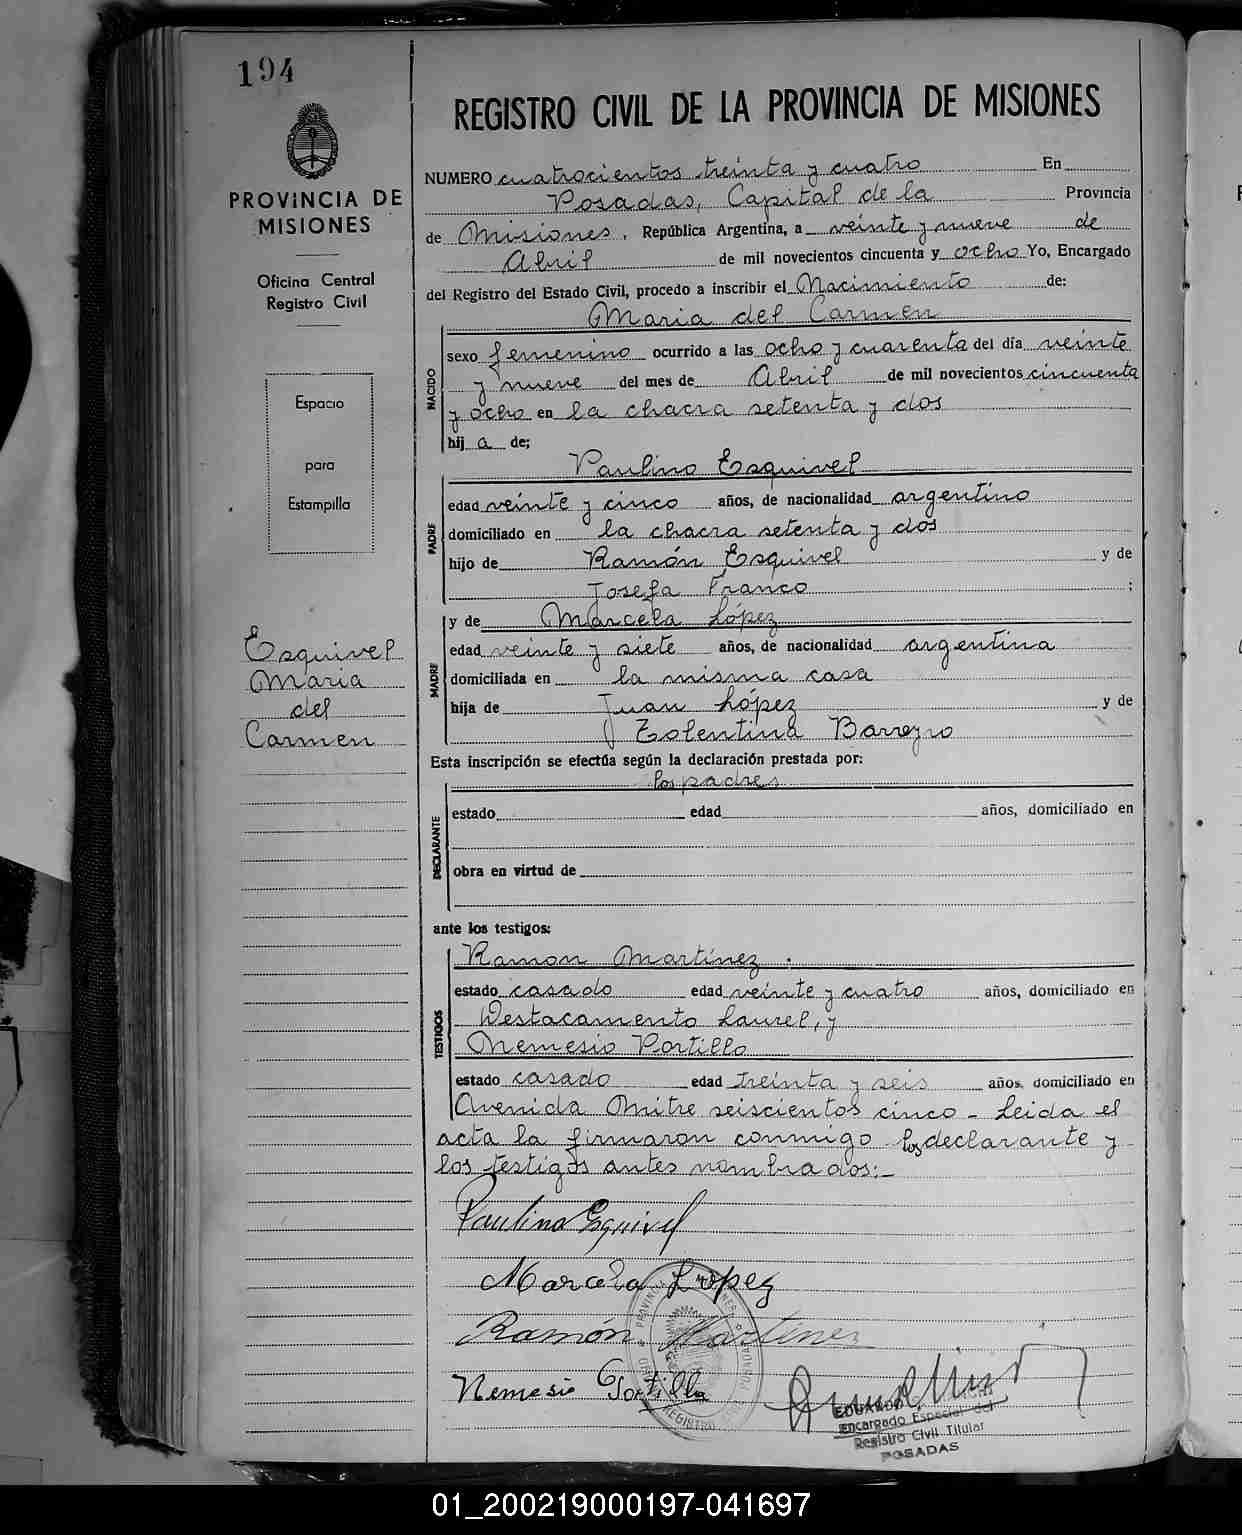 194
PROVINCIA DE
MISIONES
Oficina Central
Registro Civil
Espacio
para
Estampilla
Esquivel
Maria
del
Carmen
REGISTRO CIVIL DE LA PROVINCIA DE MISIONES
NUMERO cuatrocientos treinta y cuatro En
Posadas, Capital de la Provincia
de Misiones, República Argentina, a veinte y nueve de
Abril de mil novecientos cincuenta y ocho Yo, Encargado
del Registro del Estado Civil, procedo a inscribir el Nacimiento de:
Maria del Carmen
NACIDO
sexo femenino ocurrido a las ocho y cuarenta del día veinte
y nueve del mes de Abril de mil novecientos cincuenta
y ocho en la chacra setenta y dos
hij a de;
Paulino Esquivel
PADRE
edad veinte y cinco años, de nacionalidad argentino
domiciliado en la chacra setenta y dos
hijo de Ramón Esquivel y de
Josefa Franco ;
y de Marcela López
MADRE
edad veinte y siete años, de nacionalidad argentina
domiciliada en la misma casa
hija de Juan López y de
Tolentina Barreyro
Esta inscripción se efectúa según la declaración prestada por:
los padres
DECLARANTE
estado edad años, domiciliado en
obra en virtud de
ante los testigos:
Ramon Martínez.
TESTIGOS
estado casado edad veinte y cuatro años, domiciliado en
Destacamento Laurel, y
Nemesio Portillo
estado casado edad treinta y seis años, domiciliado en
Avenida Mitre seiscientos cinco - Leida el
acta la firmaron conmigo los declarante y
los testigos antes nombrados:-
Paulino Esquivel
Marcela López
Ramón Martinez
Nemesio Portillo
EDUARDO
Encargado Especial del
Registro Civil Titular
POSADAS
01_200219000197-041697